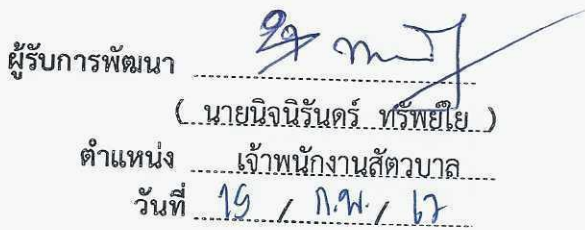 ผู้รับการพัฒนา
( นายนิจนิรันดร์ ทรัพย์ใย )
ตำแหน่ง เจ้าพนักงานสัตวบาล
วันที่ 15 / ก.พ. / 67